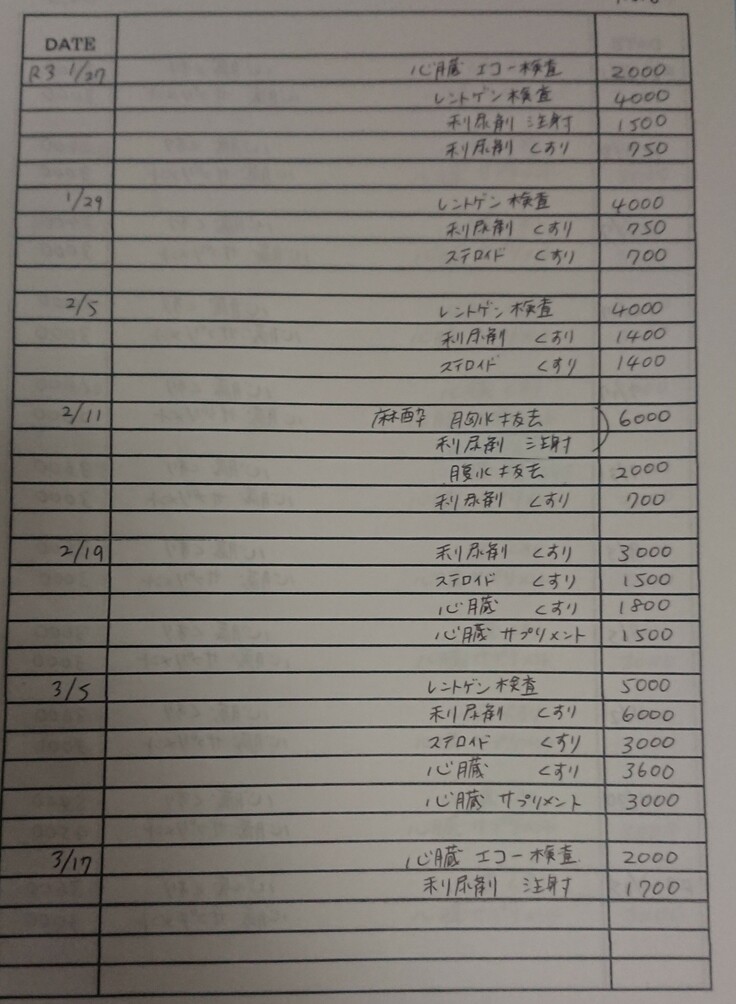 DATE
R3 1/27 心臓 エコー検査 2000
レントゲン検査 4000
利尿剤 注射 1500
利尿剤 くすり 750
1/29 レントゲン検査 4000
利尿剤 くすり 750
ステロイド くすり 700
2/5 レントゲン検査 4000
利尿剤 くすり 1400
ステロイド くすり 1400
2/11 麻酔 胸水抜去 6000
利尿剤 注射
腹水抜去 2000
利尿剤 くすり 700
2/19 利尿剤 くすり 3000
ステロイド くすり 1500
心臓 くすり 1800
心臓 サプリメント 1500
3/5 レントゲン検査 5000
利尿剤 くすり 6000
ステロイド くすり 3000
心臓 くすり 3600
心臓 サプリメント 3000
3/17 心臓 エコー検査 2000
利尿剤 注射 1700